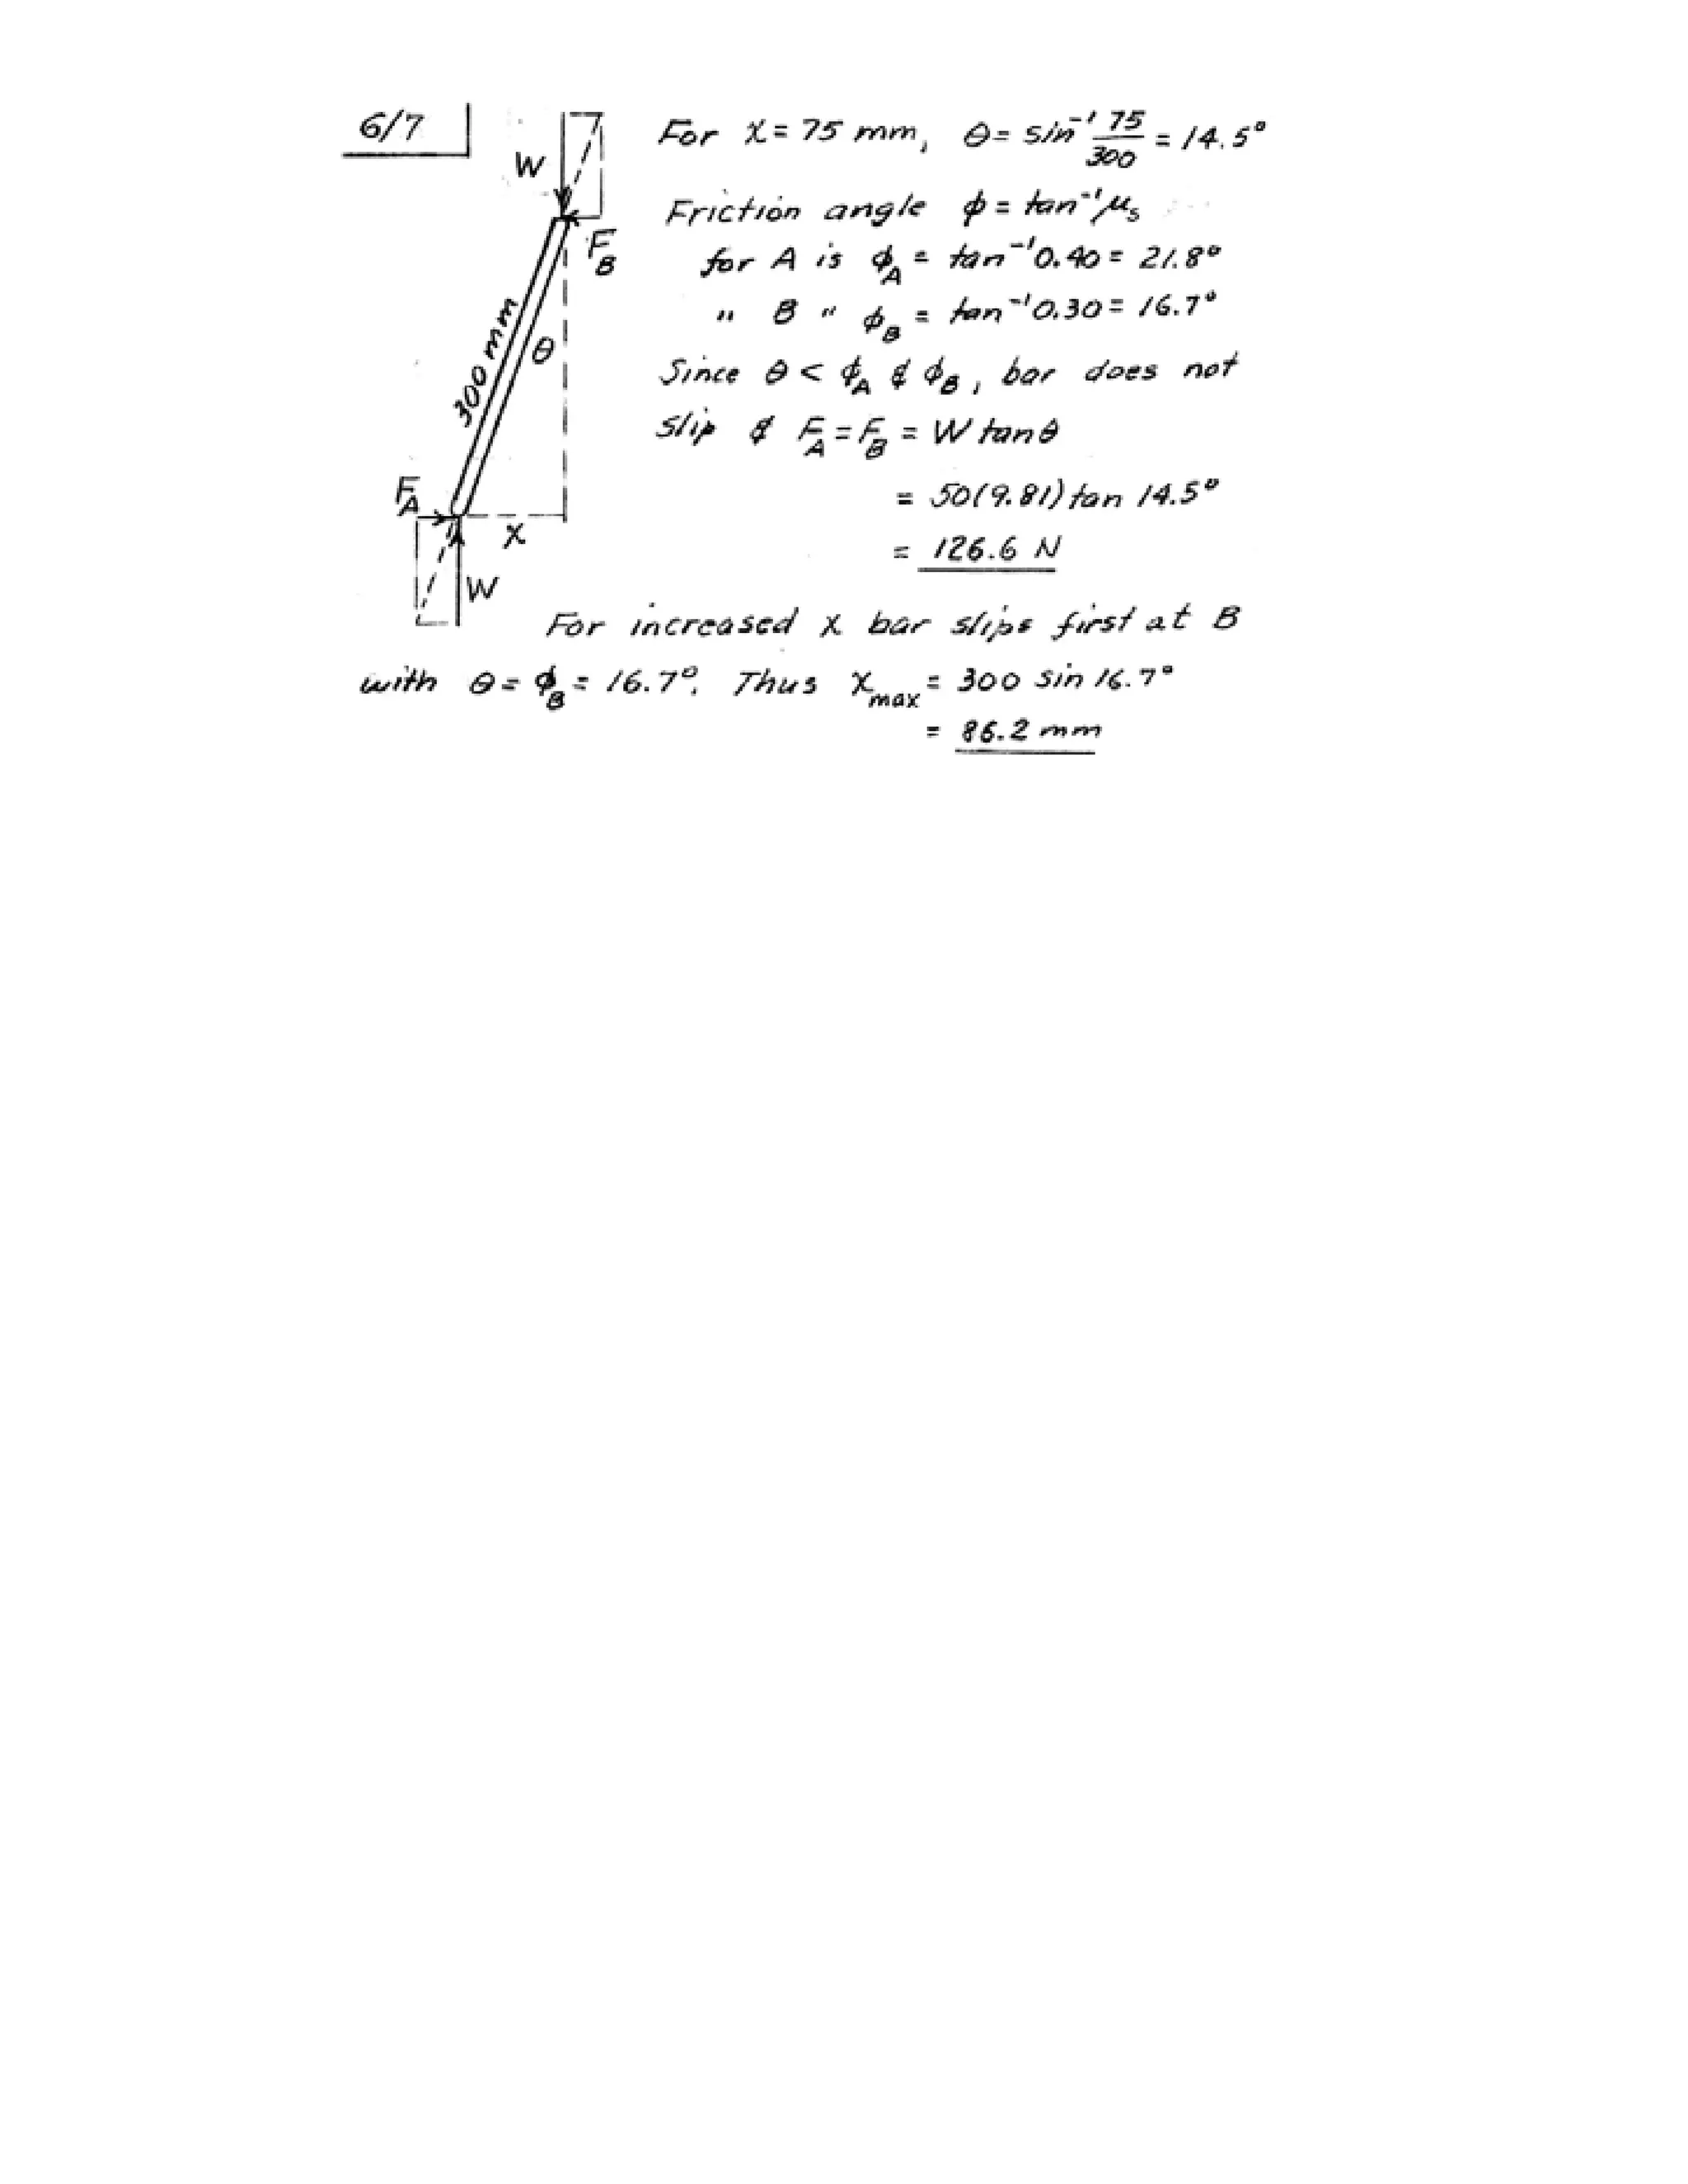 6/7
W
F_B
300 mm
θ
F_A
x
W
For x = 75 mm, θ = sin⁻¹ 75/300 = 14.5°
Friction angle φ = tan⁻¹μₛ
for A is φ_A = tan⁻¹0.40 = 21.8°
" B " φ_B = tan⁻¹0.30 = 16.7°
Since θ < φ_A & φ_B, bar does not
slip & F_A = F_B = W tanθ
= 50(9.81) tan 14.5°
= 126.6 N
For increased x bar slips first at B
with θ = φ_B = 16.7°. Thus x_max = 300 sin 16.7°
= 86.2 mm